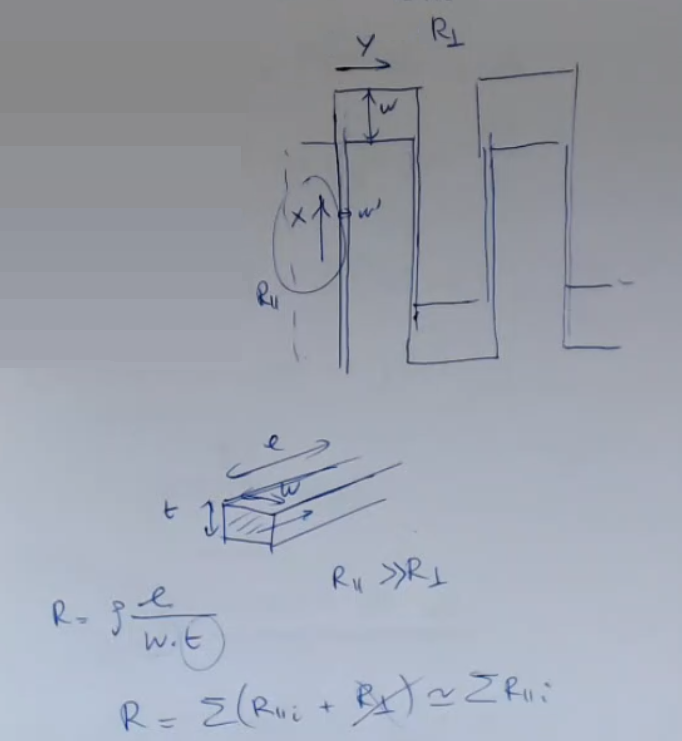 R⊥
Y
w
X
w'
R∥
l
w
t
R∥ >> R⊥
R = ρ l / w.t
R = Σ(R∥i + R⊥) ≃ ΣR∥i